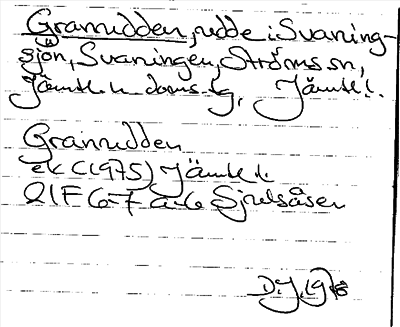 Granudden, udde i Svaning-
sjön, Svaningen, Ströms sn,
Jämtl. n. doms.lg, Jämtl.
Granudden
ek C (1975) Jämtl. l.
21F 6-7 a-c Sjulsåsen
D.J. 1978